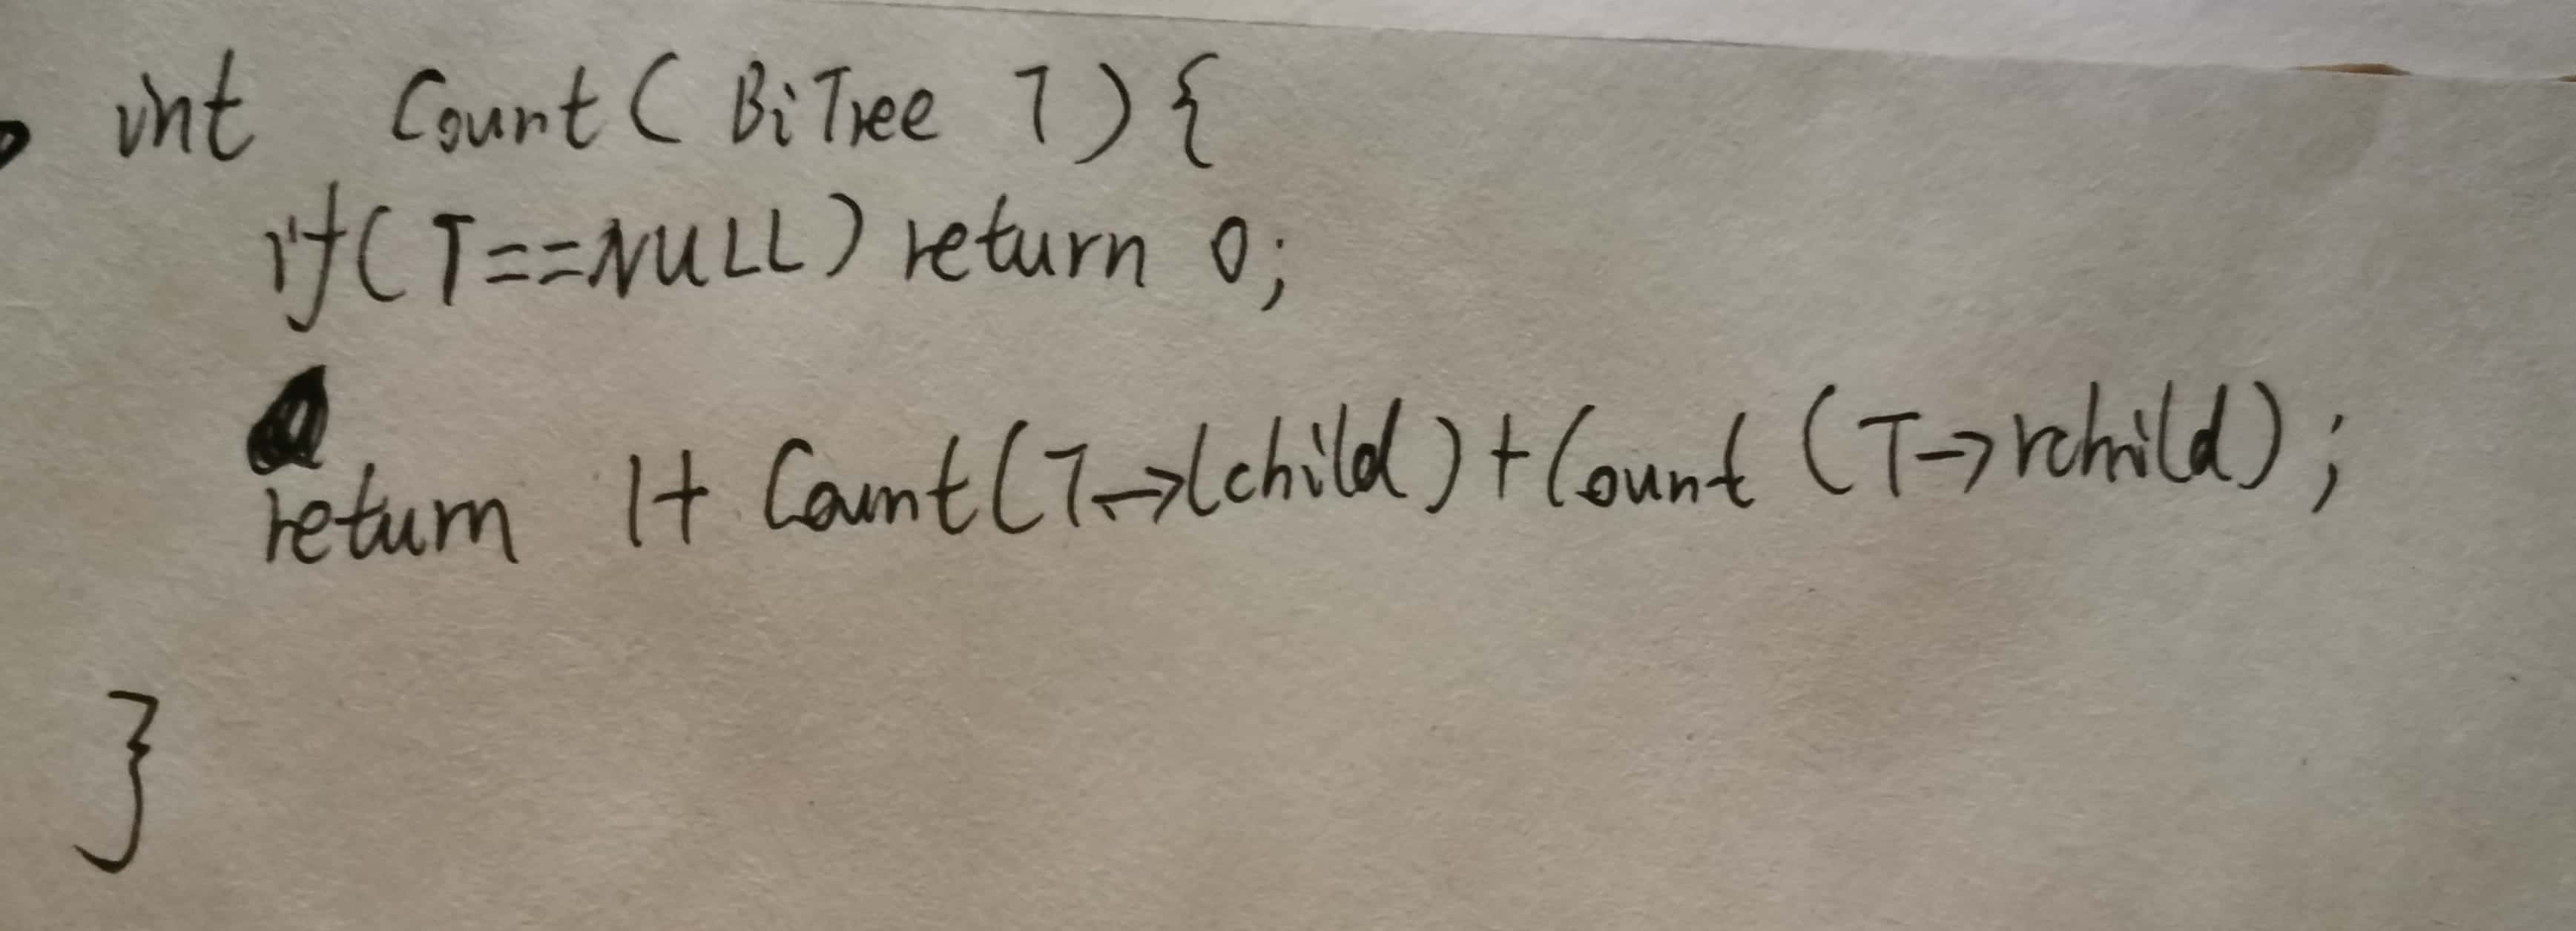 int Count(BiTree T){
if(T==NULL) return 0;
return 1+ Count(T->lchild)+Count(T->rchild);
}